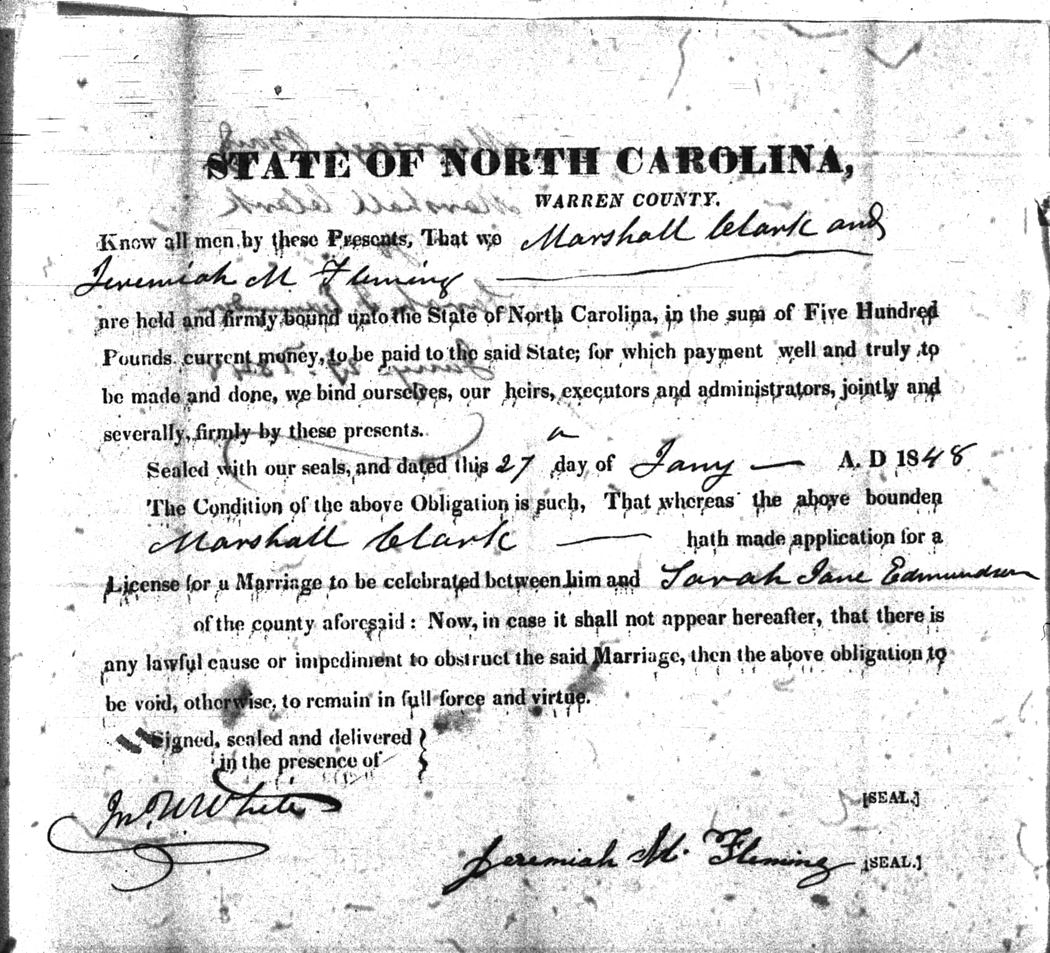 STATE OF NORTH CAROLINA,
WARREN COUNTY.
Know all men by these Presents, That we Marshall Clark and
Jeremiah M Fleming
are held and firmly bound unto the State of North Carolina, in the sum of Five Hundred
Pounds current money, to be paid to the said State; for which payment well and truly to
be made and done, we bind ourselves, our heirs, executors and administrators, jointly and
severally, firmly by these presents.
Sealed with our seals, and dated this 27 day of Jany — A. D 1848
The Condition of the above Obligation is such, That whereas the above bounden
Marshall Clark — hath made application for a
License for a Marriage to be celebrated between him and Sarah Jane Edmundson
of the county aforesaid: Now, in case it shall not appear hereafter, that there is
any lawful cause or impediment to obstruct the said Marriage, then the above obligation to
be void, otherwise, to remain in full force and virtue.
Signed, sealed and delivered
in the presence of
Jno. W White
[SEAL.]
Jeremiah M. Fleming [SEAL.]